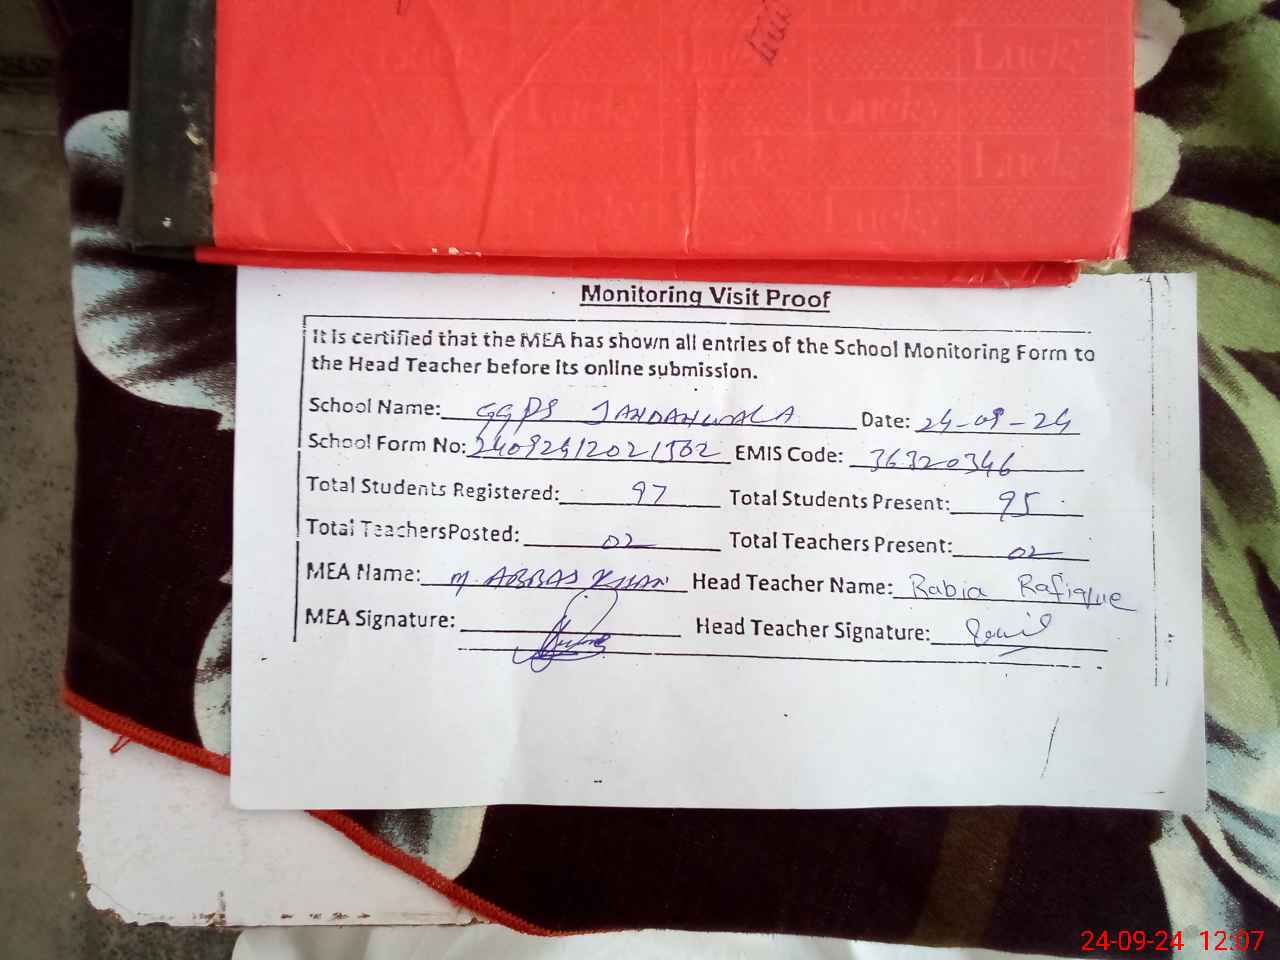 Lucky
Lucky
Lucky
Lucky
Monitoring Visit Proof
It is certified that the MEA has shown all entries of the School Monitoring Form to
the Head Teacher before its online submission.
School Name: GGPS JANDANWALA Date: 24-09-24
School Form No: 24092412021562 EMIS Code: 36320346
Total Students Registered: 97 Total Students Present: 95
Total TeachersPosted: 02 Total Teachers Present: 02
MEA Name: M ABBAS KHAN Head Teacher Name: Rabia Rafique
MEA Signature: Head Teacher Signature:
24-09-24 12:07